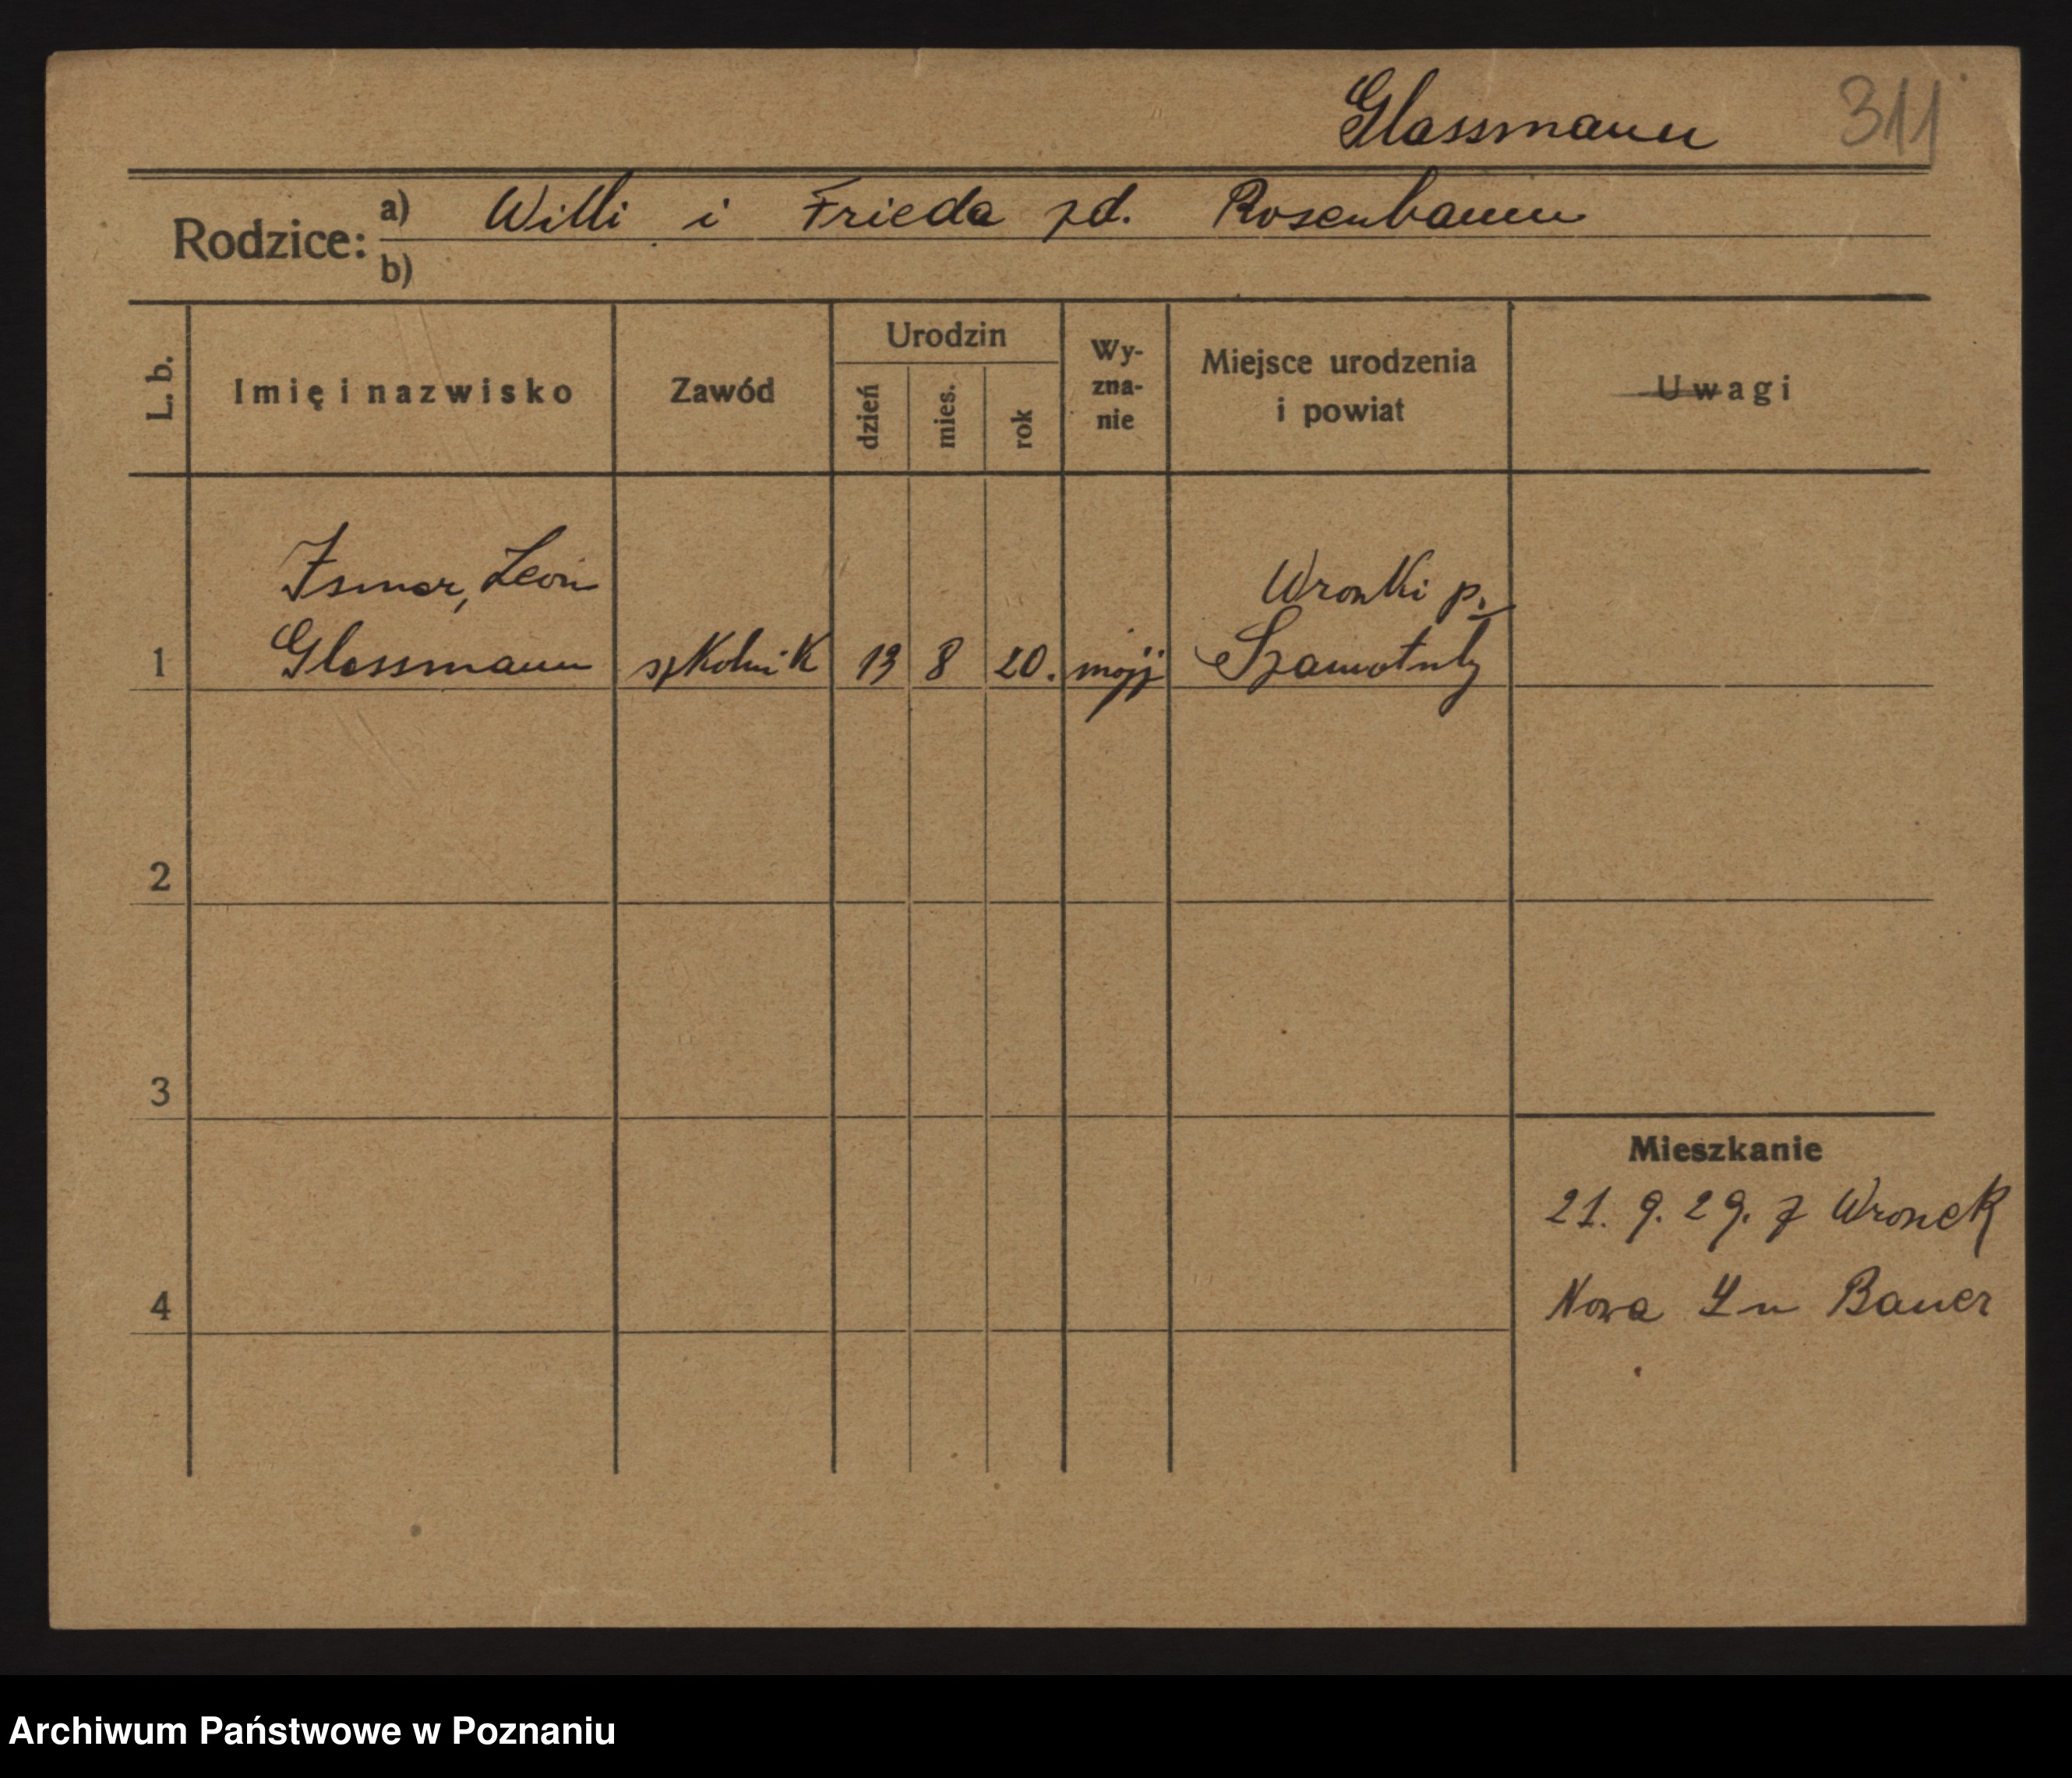 Glassmann 311
Rodzice: a) Willi i Frieda zd. Rosenbaum
b)
L. b. Imię i nazwisko Zawód Urodzin dzień mies. rok Wy-zna-nie Miejsce urodzenia i powiat Uwagi
Ismar, Leon Wronki p.
1 Glassmann szkolnik 13 8 20. mojż Szamotuły
2
3
Mieszkanie
21. 9. 29. z Wronek
4 Nowa u Bauer
Archiwum Państwowe w Poznaniu